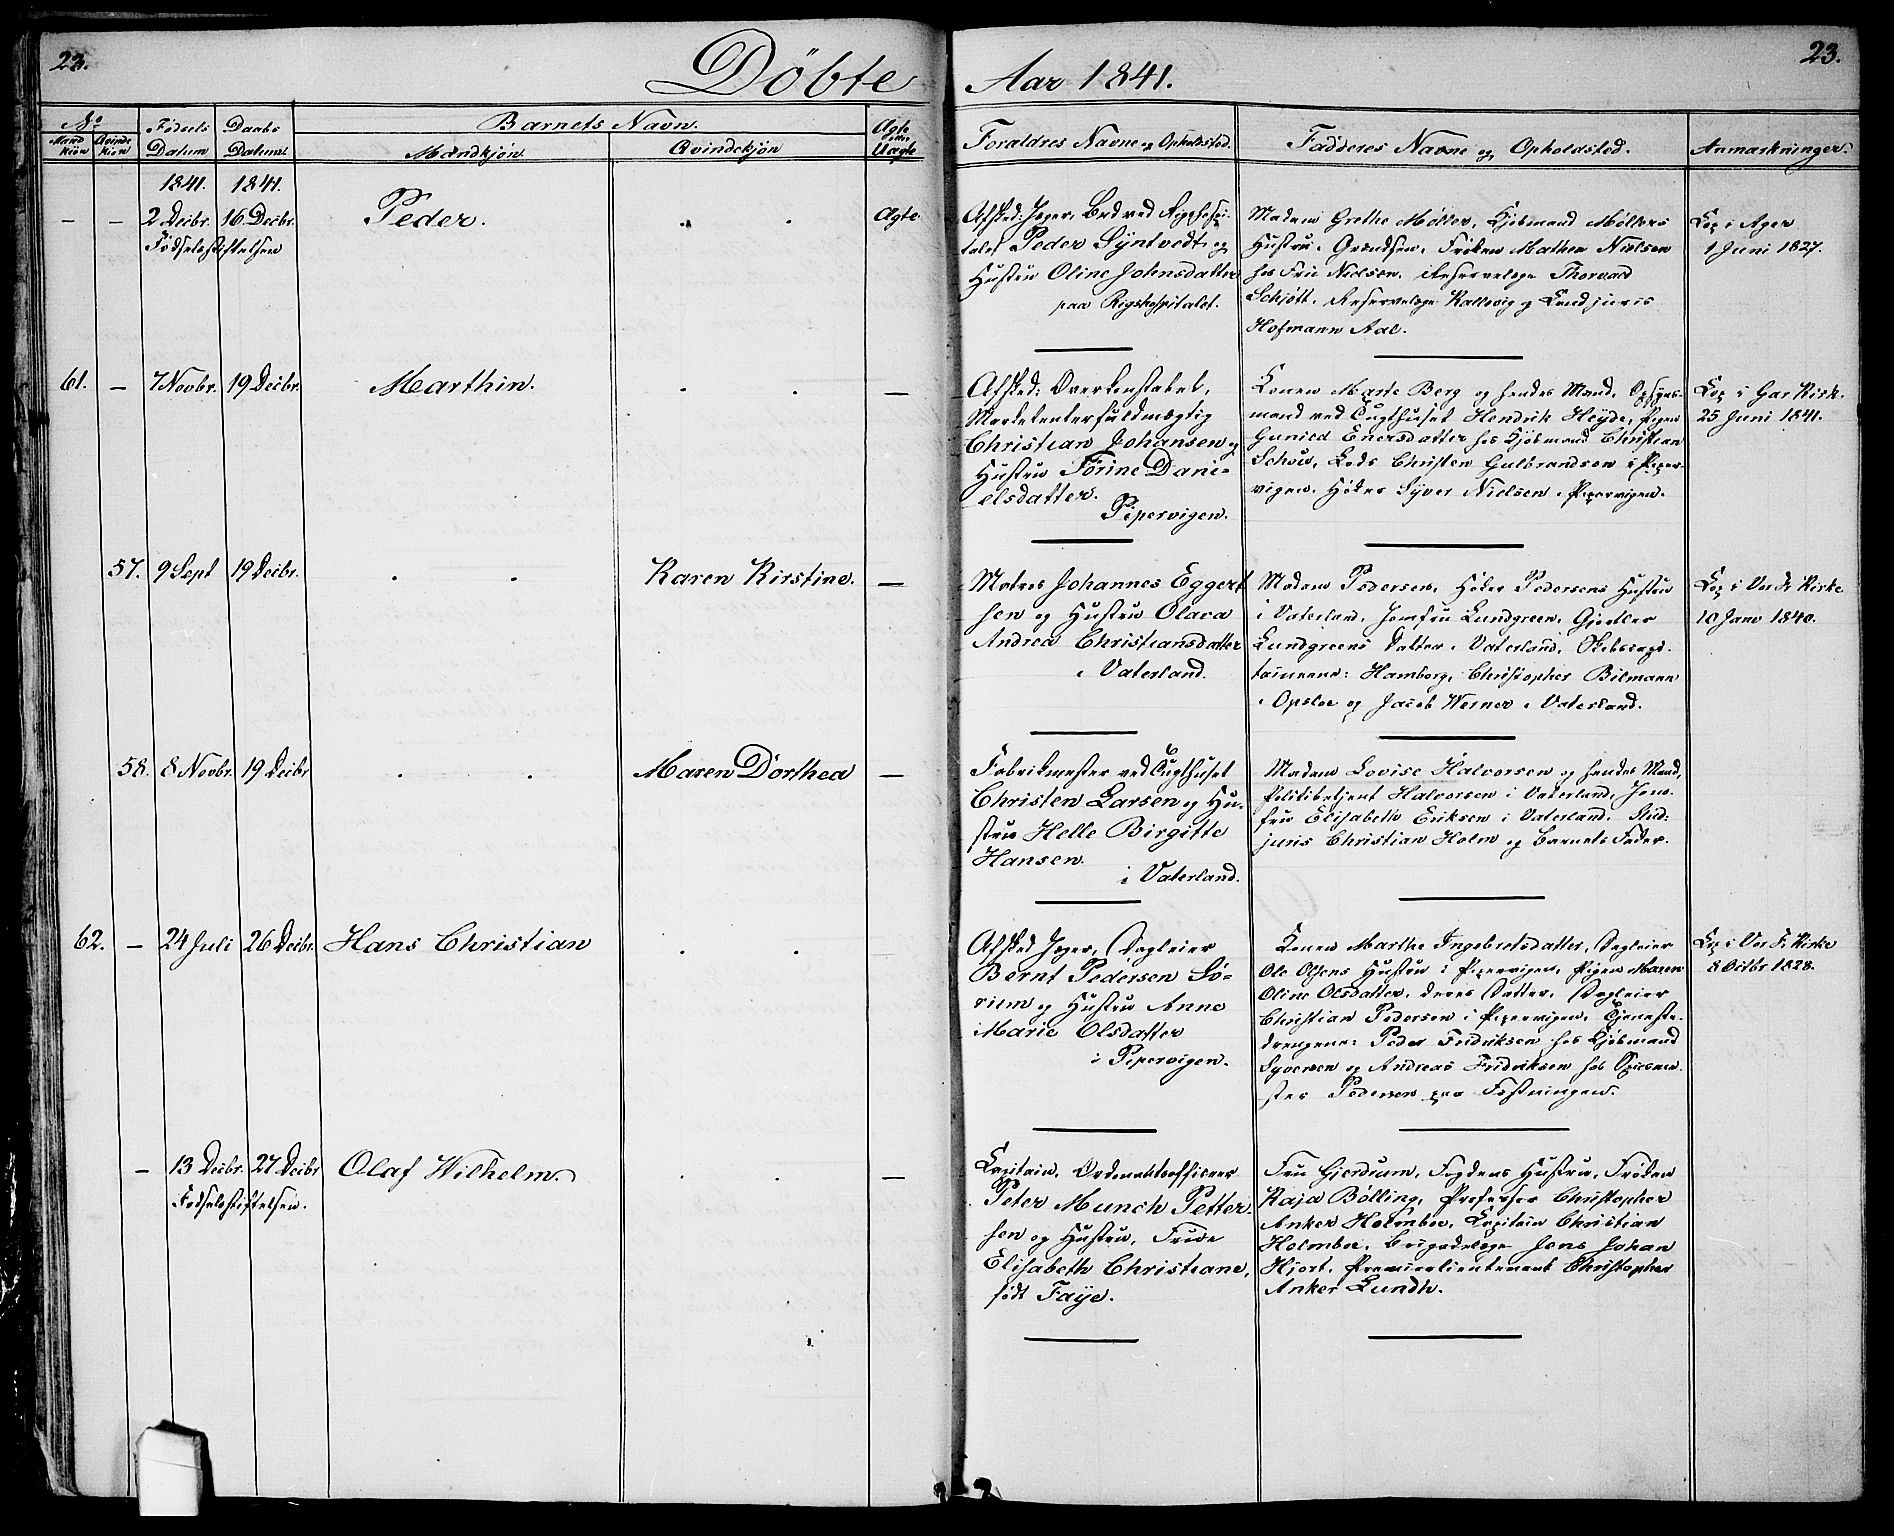 23.
Döbte
Aar 1841.
23.
No
Mand
kiön
Qvinde
kiön
Fødsels
Datum
Daabs
Datum.
Barnets Navn.
Mandkjön.
Qvindekjön
Ægte
eller
Uægte
Foraldres Navne og Opholdsted.
Fadderes Navne og Opholdsted.
Anmærkninger.
1841.
1841.
– – 2 Decbr. 16 Decbr. Peder. Ægte
Fødselsstiftelsen
Afsked: Jæger, Bud ved Rigshospi-
talet Peder Syntvedt og
Hustru Oline Johnsdatter
paa Rigshospitalet.
Madam Grethe Möller, Kjøbmand Möllers
Hustru, Grændsen, Frøken Mathea Nielsen
hos Frue Nielsen, Reservelæge Thorvald
Schjött, Reservelæge Kallevig og Cand juris
Hofmann Aal.
Cop i Ager
1 Juni 1827.
61. – 7 Novbr. 19 Decbr. Marthin. –
Afsked: Overkonstabel,
Marketenterfuldmægtig
Christian Johansen og
Hustru Törine Dani-
elsdatter.
Pipervigen.
Konen Marte Berg og hendes Mand, Opsyns-
mand ved Tugthuset Hendrik Heyde, Pigen
Gunild Enersdatter hos Kjøbmand Christian
Schou, Lods Christen Gulbrandsen i Piper-
vigen, Höker Syver Nielsen i Pipervigen.
Cop i Gar Kirk.
25 Juni 1841.
57. 9 Sept 19 Decbr. Karen Kirstine. –
Matros Johannes Eggert
sen og Hustru Olava
Andrea Christiansdatter
i Vaterland.
Madam Pedersen, Höker Pedersens Hustru
i Vaterland, Jomfru Lundgreen, Gjørtler
Lundgreens Datter i Vaterland, Skibscapi-
tainerne: Hamborg, Christopher Bilmann
i Opsloe og Jacob Werner i Vaterland.
Cop i Vor Fr Kirke
10 Janv 1840.
58. 8 Novbr. 19 Decbr Maren Dorthea –
Fabrikmester ved Tugthuset
Christen Larsen og Hu-
stru Helle Birgitte
Hansen.
i Vaterland.
Madam Lovise Halvorsen og hendes Mand,
Politibetjent Halvorsen i Vaterland, Jom-
fru Elisabeth Eriksen i Vaterland, Stud:
juris Christian Holm og Barnets Fader.
62. – 24 Juli 26 Decbr. Hans Christian –
Afsked Jæger, Dagleier
Bernt Pedersen Sö-
rium og Hustru Anne
Marie Olsdatter
i Pipervigen.
Konen Marthe Ingebretsdatter, Dagleier
Ole Olsens Hustru i Pipervigen, Pigen Maren
Oline Olsdatter, deres Datter, Dagleier
Christian Pedersen i Pipervigen, Tjeneste-
drengene: Peder Fredriksen hos Kjøbmand
Syversen og Andreas Fridriksen hos
Pedersen paa Fæstningen.
Cop i Vor F. Kirke
8 Octbr 1828.
– 13 Decbr. 27 Decbr Olaf Wilhelm. –
Fødselsstiftelsen.
Capitain, Ordonantsofficeer
Peter Munch Petter
sen og Hustru, Frue
Elisabeth Christiane,
födt Faye.
Fru Gjerdrum, Fogdens Hustru, Frøken
Kaja Bölling, Professor Christopher
Anker Holmboe, Capitain Christian
Holmboe, Brigadelæge Jens Johan
Hjort, Premierlieutenant Christopher
Anker Lundh.